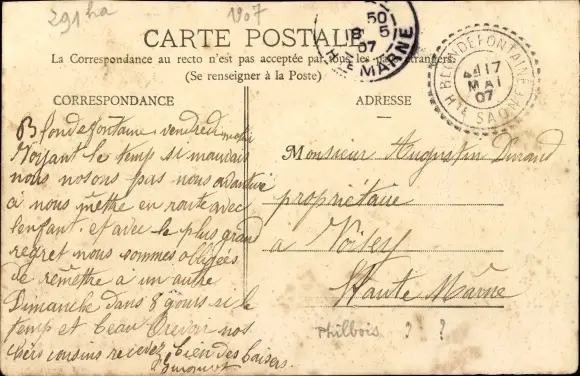 291 ha
Vo7
CARTE POSTALE
La Correspondance au recto n'est pas acceptée par tous les pays étrangers.
(Se renseigner à la Poste)
50
8 5
07
HTE MARNE
BLONDEFONTAINE
17
MAI
07
HTE SAONE
CORRESPONDANCE
ADRESSE
Blondefontaine vendredi matin
Voyant le temps si mauvais
nous nosons pas nous avanturé
a nous mettre en route avec
lenfant. et avec le plus grand
regret nous sommes obligées
de remettre a un autre
Dimanche dans 8 yours si le
temp et beau Orevoir nos
chers cousins recevez bien des baisers.
Monsieur Augustin Durand
propriétaire
à Voisey
Haute Marne
Philbois ? ?